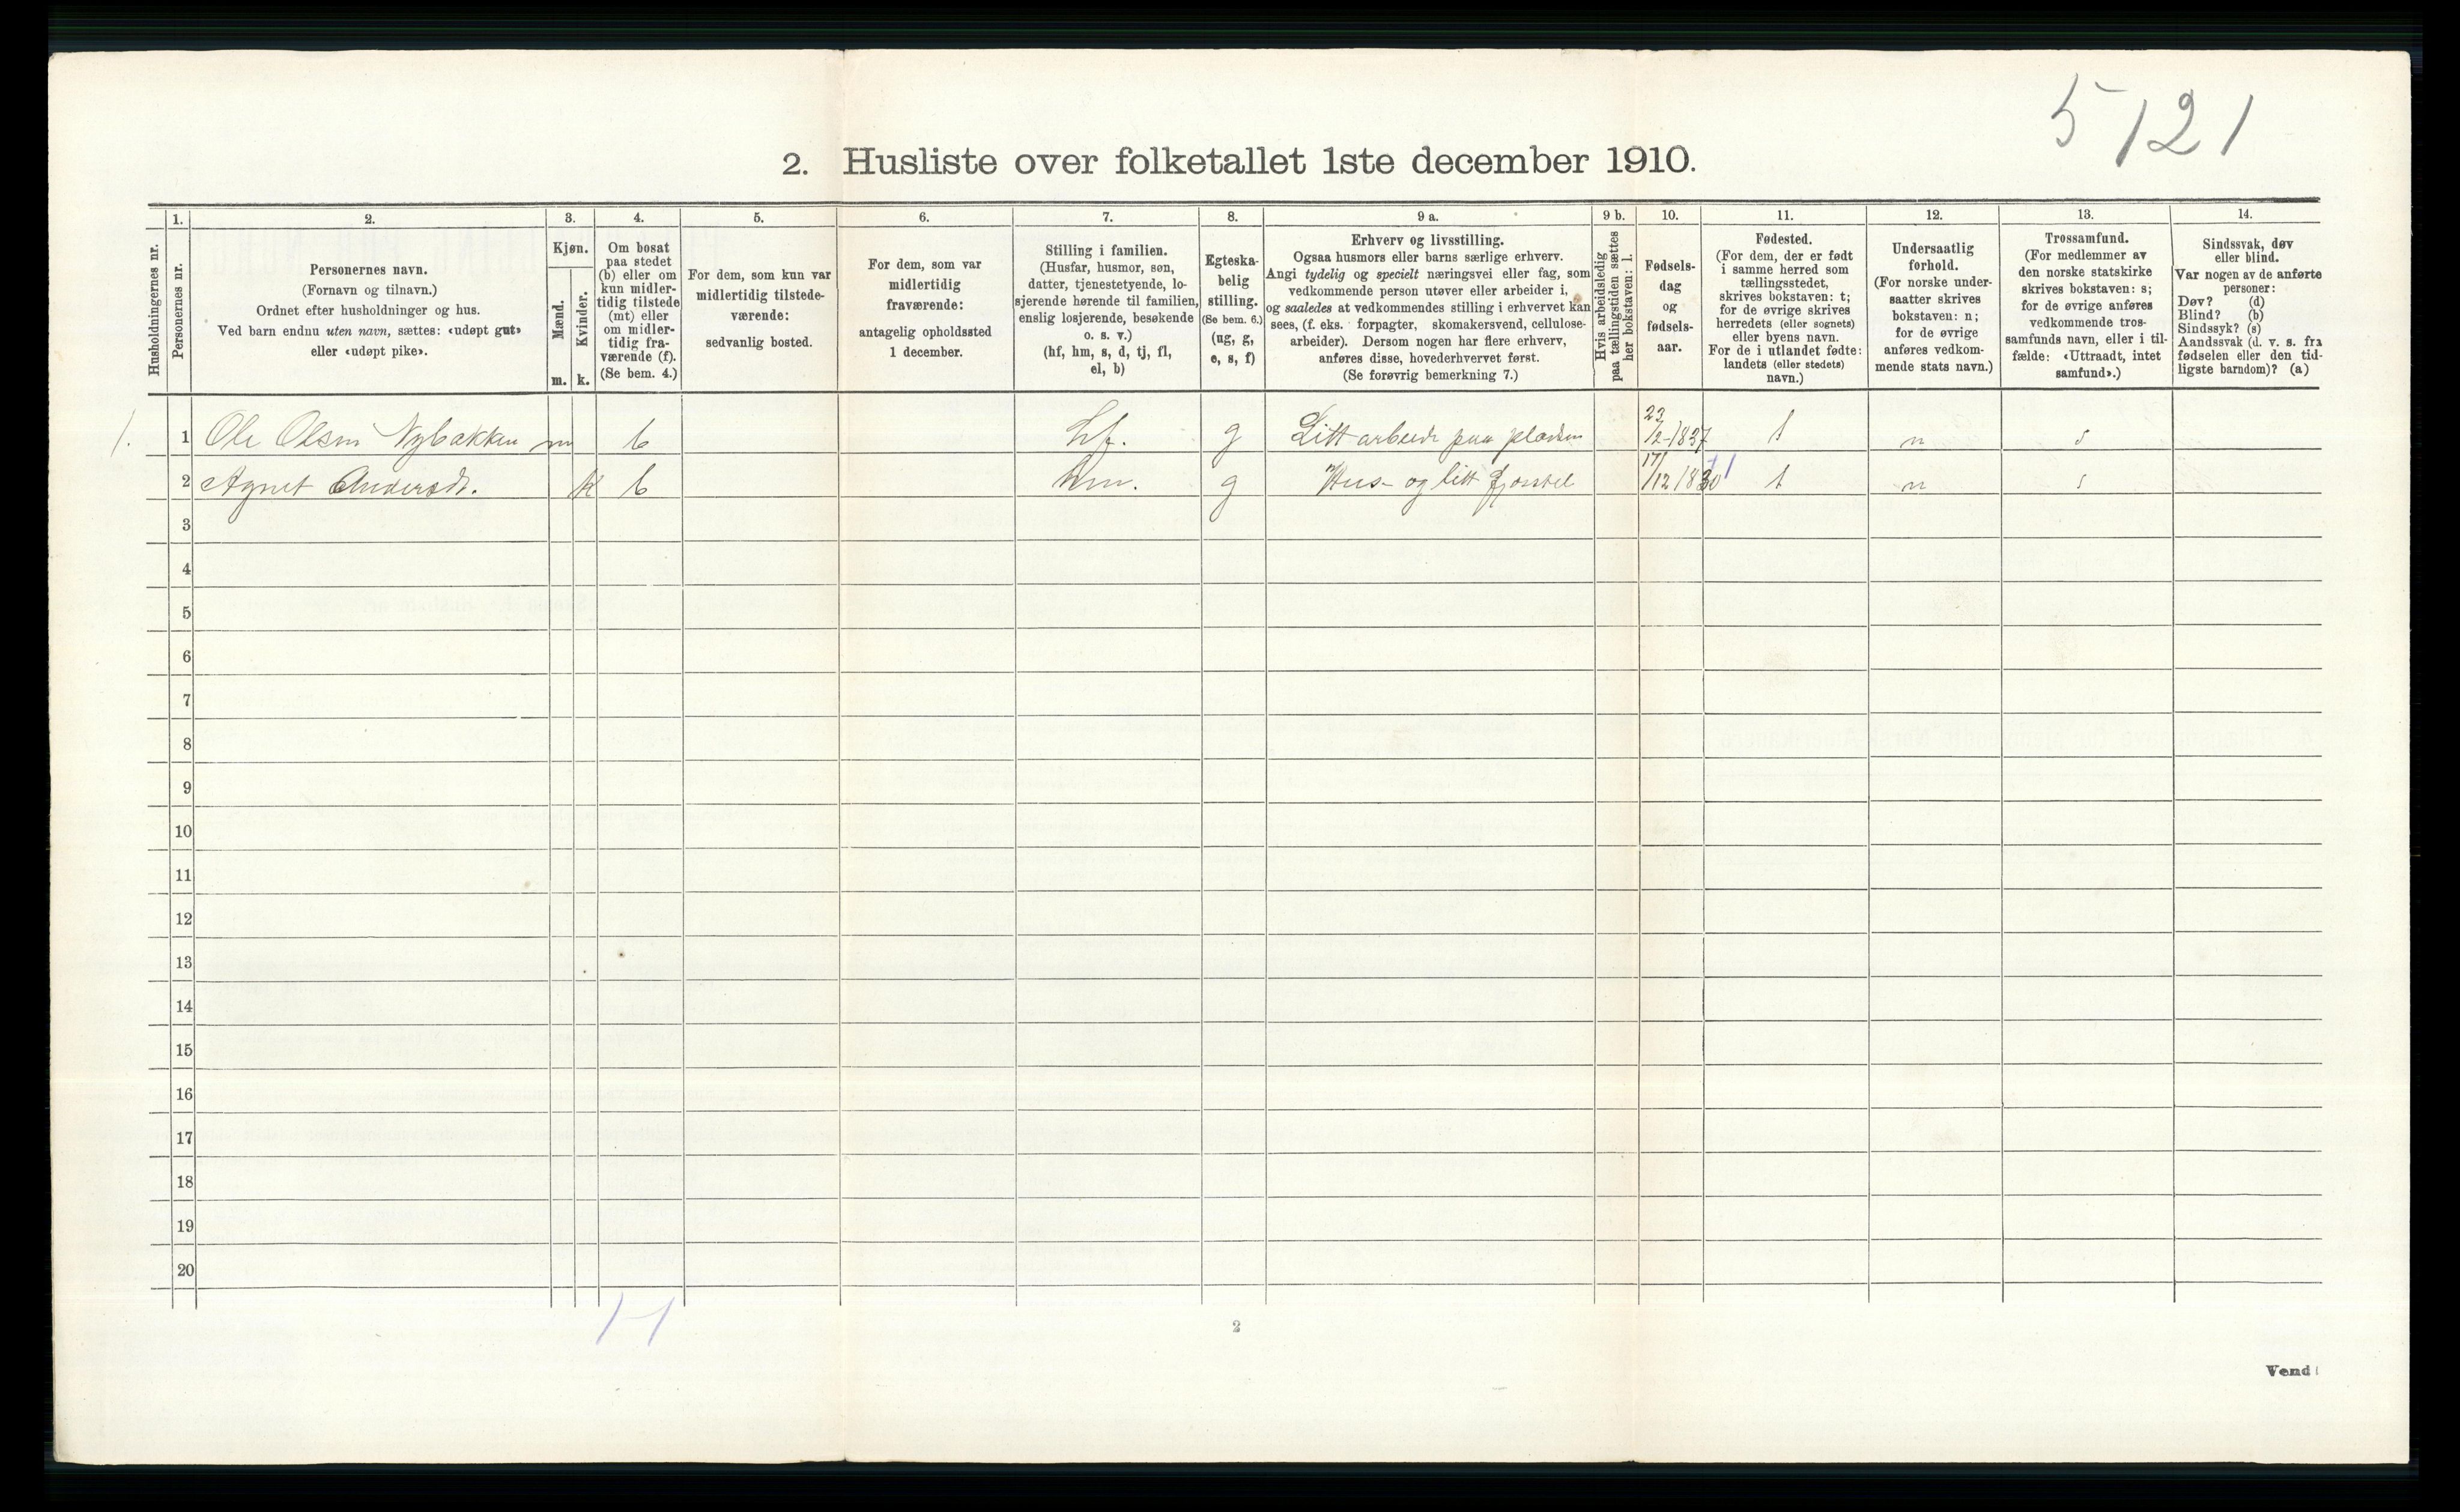 5/121
2. Husliste over folketallet 1ste december 1910.
Husholdningernes nr.
1.
Personernes nr.
2.
Personernes navn.
(Fornavn og tilnavn.)
Ordnet efter husholdninger og hus.
Ved barn endnu uten navn, sættes: «udøpt gut»
eller «udøpt pike».
3.
Kjøn.
Mænd.
Kvinder.
m. k.
4.
Om bosat
paa stedet
(b) eller om
kun midler-
tidig tilstede
(mt) eller
om midler-
tidig fra-
værende (f).
(Se bem. 4.)
5.
For dem, som kun var
midlertidig tilstede-
værende:
sedvanlig bosted.
6.
For dem, som var
midlertidig
fraværende:
antagelig opholdssted
1 december.
7.
Stilling i familien.
(Husfar, husmor, søn,
datter, tjenestetyende, lo-
sjerende hørende til familien,
enslig losjerende, besøkende
o. s. v.)
(hf, hm, s, d, tj, fl,
el, b)
8.
Egteska-
belig
stilling.
(Se bem. 6.)
(ug, g,
e, s, f)
9 a.
Erhverv og livsstilling.
Ogsaa husmors eller barns særlige erhverv.
Angi tydelig og specielt næringsvei eller fag, som
vedkommende person utøver eller arbeider i,
og saaledes at vedkommendes stilling i erhvervet kan
sees, (f. eks. forpagter, skomakersvend, cellulose-
arbeider). Dersom nogen har flere erhverv,
anføres disse, hovederhvervet først.
(Se forøvrig bemerkning 7.)
9 b.
Hvis arbeidsledig
paa tællingstiden sættes
her bokstaven: l.
10.
Fødsels-
dag
og
fødsels-
aar.
11.
Fødested.
(For dem, der er født
i samme herred som
tællingsstedet,
skrives bokstaven: t;
for de øvrige skrives
herredets (eller sognets)
eller byens navn.
For de i utlandet fødte:
landets (eller stedets)
navn.)
12.
Undersaatlig
forhold.
(For norske under-
saatter skrives
bokstaven: n;
for de øvrige
anføres vedkom-
mende stats navn.)
13.
Trossamfund.
(For medlemmer av
den norske statskirke
skrives bokstaven: s;
for de øvrige anføres
vedkommende tros-
samfunds navn, eller i til-
fælde: «Uttraadt, intet
samfund».)
14.
Sindssvak, døv
eller blind.
Var nogen av de anførte
personer:
Døv? (d)
Blind? (b)
Sindssyk? (s)
Aandssvak (d. v. s. fra
fødselen eller den tid-
ligste barndom)? (a)
1. 1 Ole Olsen Nybakken m b hf. g Litt arbeide paa pladsen 23/2-1837 t n s
2 Agnet Andersdt. k b hm. g Hus- og litt fjøsstel 17/12 1830 t n s
3
4
5
6
7
8
9
10
11
12
13
14
15
16
17
18
19
20
1-1
2
Vend!